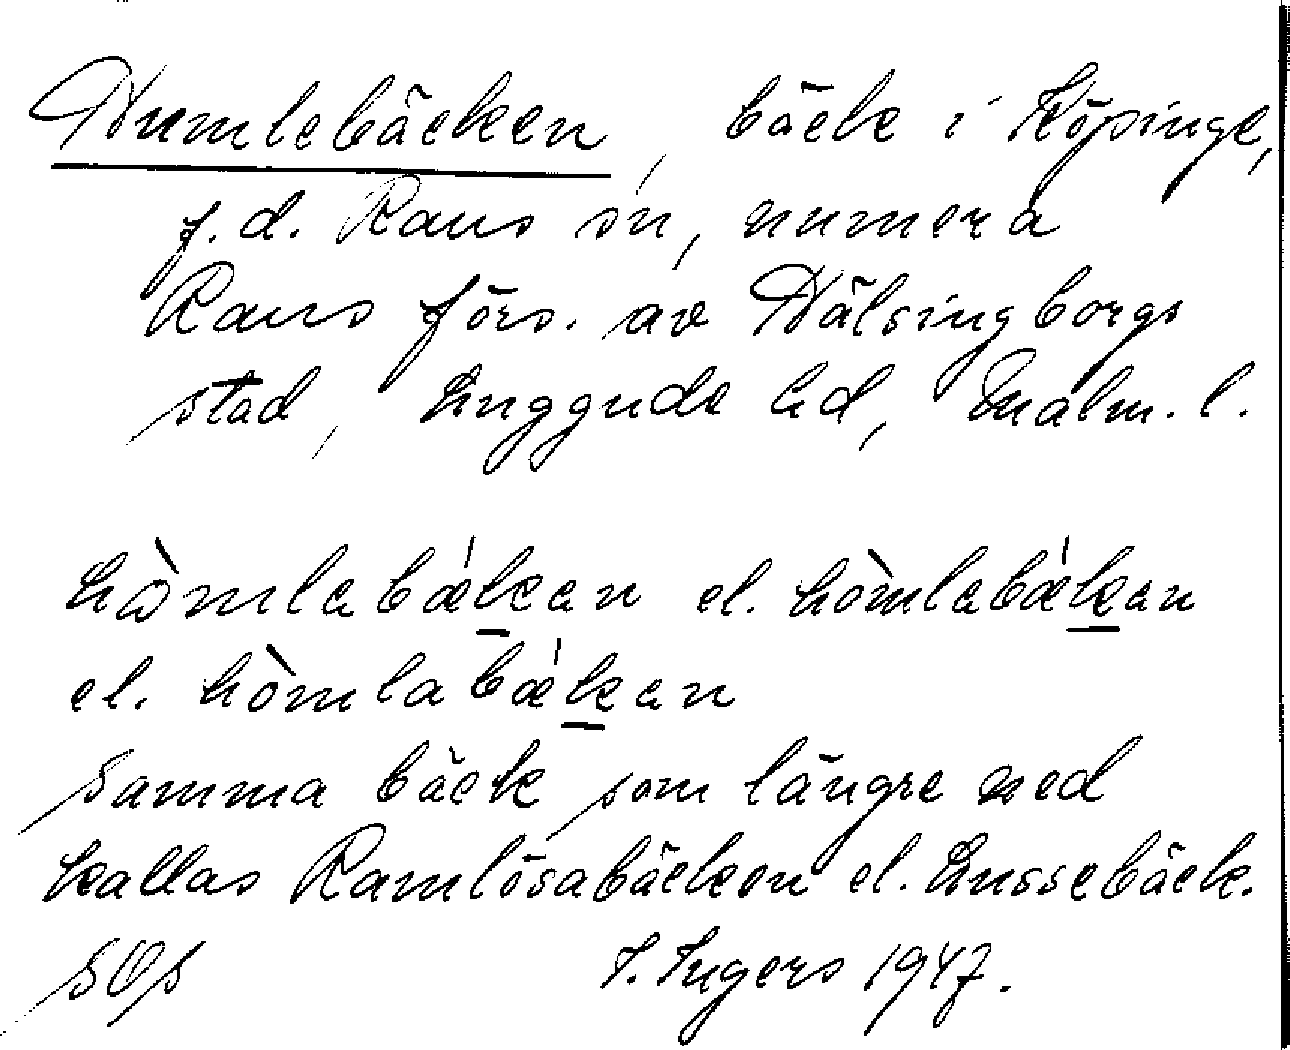 Humlebäcken, bäck i Köpinge,
f.d. Raus sn, numera
Raus förs. av Hälsingborgs
stad, Luggude hd, Malm. l.
hòmlabǽkan el. hòmlabǽkan
el. hòmlabǽkan
Samma bäck som längre ned
kallas Ramlösabäcken el. Lussebäck.
I. Ingers 1947.